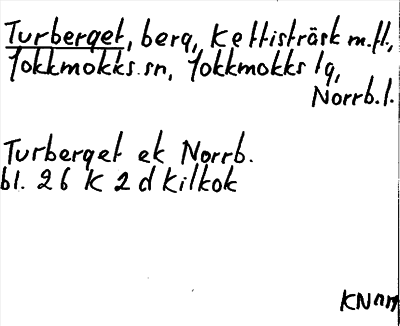 Turberget, berg, Kettisträsk m.fl.,
Jokkmokks sn, Jokkmokks lg,
Norrb.l.
Turberget ek Norrb.
bl. 26 K 2 d Kilkok